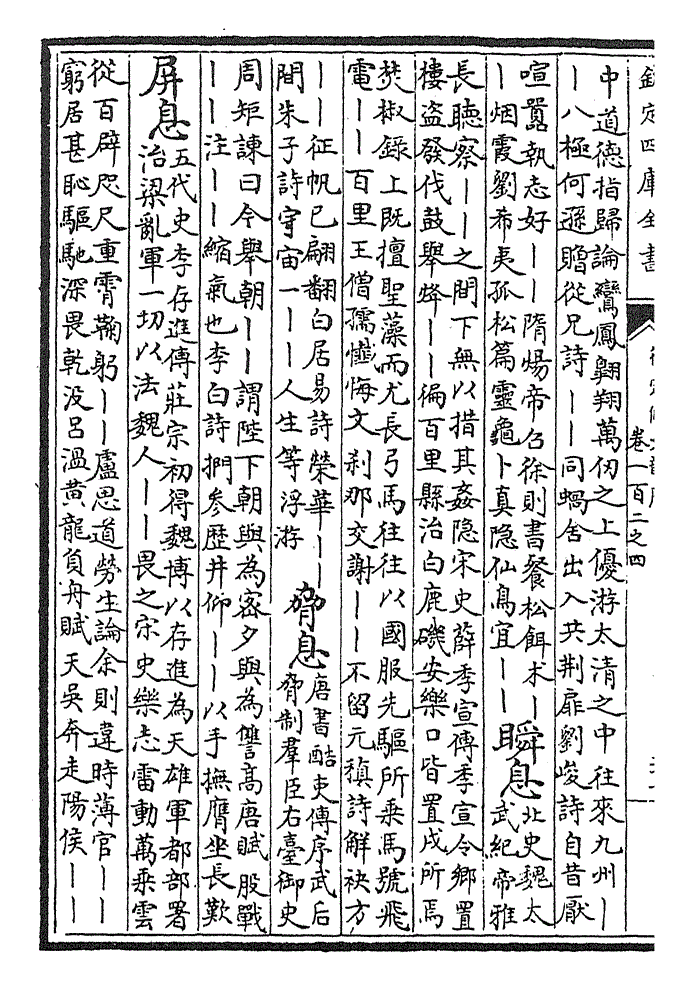 欽定四庫全書
卷一百二之四
中道德指歸論鸞鳳翺翔萬仞之上優游太清之中往來九州丨
丨八極何遜贈從兄詩丨丨同蝸舍出入共荆扉劉峻詩自昔厭
喧囂執志好丨丨隋煬帝召徐則書餐松餌术丨
丨烟霞劉希夷孤松篇靈龜卜真隐仙鳥宜丨丨
瞬息
北史魏太
武紀帝雅
長聽察丨丨之間下無以措其姦隐宋史薛季宣傳季宣令鄉置
樓盗發伐鼓舉烽丨丨徧百里縣治白鹿磯安樂口皆置戍所焉
焚椒錄上既擅聖藻而尤長弓馬往往以國服先驅所乗馬號飛
電丨丨百里王僧孺懴悔文刹那交謝丨丨不留元稹詩解袂方
丨丨征帆已翩翻白居易詩榮華丨丨
間朱子詩宇宙一丨丨人生等浮游
脅息
唐書酷吏傳序武后
脅制羣臣右臺御史
周矩諫曰今舉朝丨丨謂陛下朝與為宻夕與為讐高唐賦股戰
丨丨注丨丨縮氣也李白詩捫參歴井仰丨丨以手撫膺坐長歎
屏息
五代史李存進傳莊宗初得魏博以存進為天雄軍都部署
治梁亂軍一切以法魏人丨丨畏之宋史樂志雷動萬乗雲
從百辟咫尺重霄鞠躬丨丨盧思道勞生論余則違時薄官丨丨
窮居甚恥驅馳深畏乾没吕温黄龍負舟賦天吳奔走陽侯丨丨